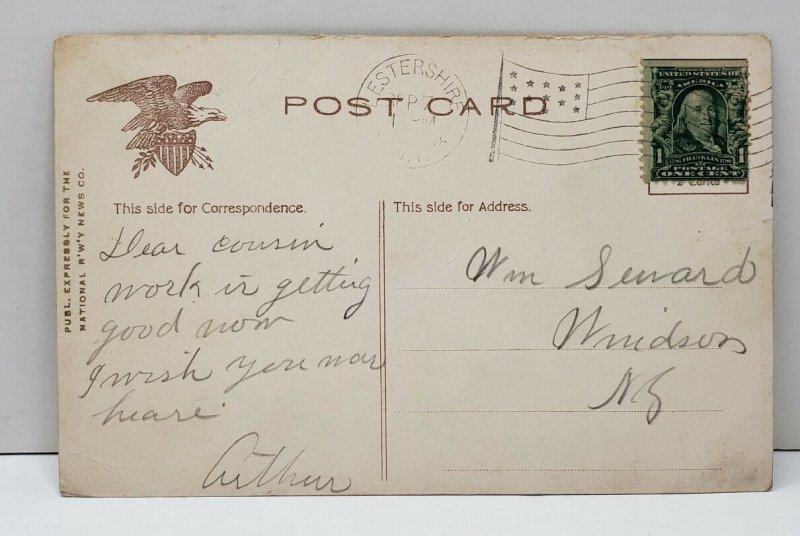 POST CARD
ESTERSHIRE
SEP 7
SERIES 1902
UNITED STATES OF
AMERICA
1706 FRANKLIN 1790
1 POSTAGE 1
ONE CENT
2 Cents
PUBL. EXPRESSLY FOR THE
NATIONAL R'W'Y NEWS CO.
This side for Correspondence.
This side for Address.
Dear cousin
work is getting
good now
I wish you war
heare
Arthur
Wm Seward
Windsor
N.Y